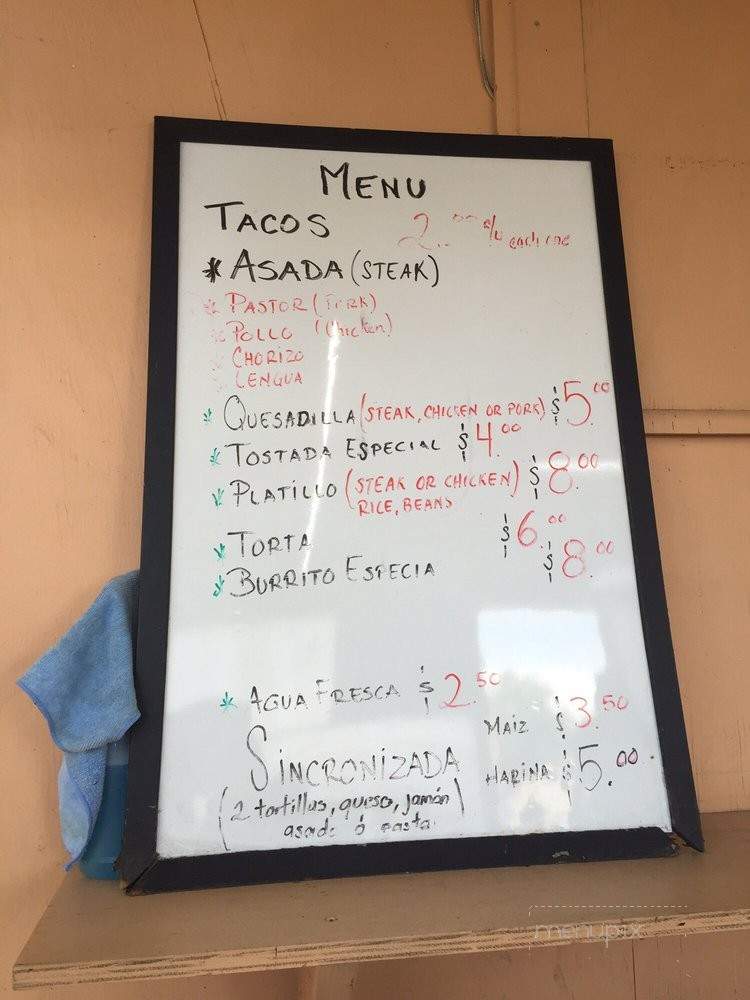 MENU
TACOS 2.00 c/u each one
* ASADA (STEAK)
* PASTOR (Pork)
* POLLO (Chicken)
* CHORIZO
* LENGUA
* QUESADILLA (STEAK, CHICKEN OR PORK) $5.00
* TOSTADA ESPECIAL $4.00
* PLATILLO (STEAK OR CHICKEN) $8.00
RICE, BEANS
* TORTA $6.00
* BURRITO ESPECIA $8.00
* AGUA FRESCA $2.50
SINCRONIZADA MAIZ $3.50
HARINA $5.00
(2 tortillas, queso, jamón)
asada ó
menupix